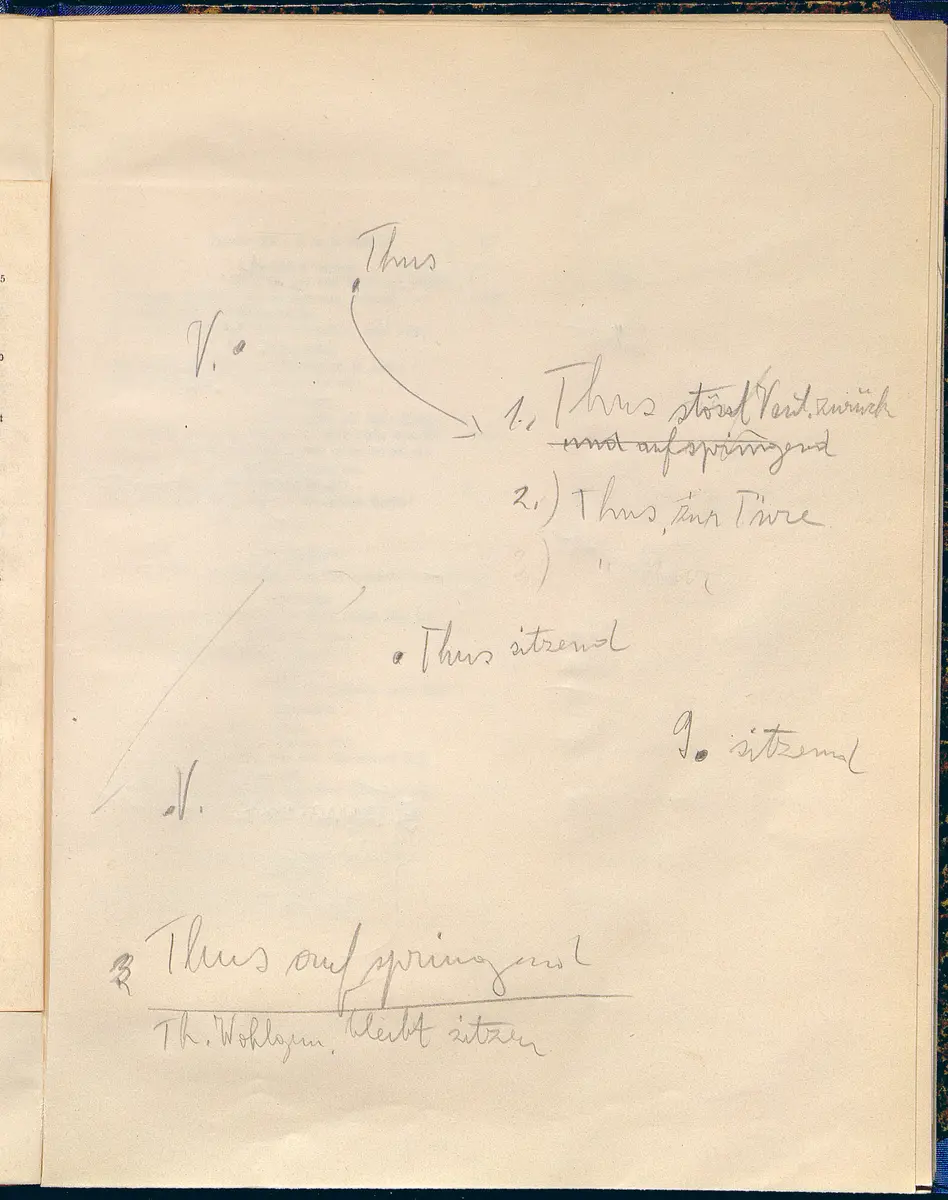 Thus
V.
1., Thus stösst Vent. zurück
und aufspringend
2.) Thus, zur Türe
Thus sitzend
G. sitzend
V.
3 Thus aufspringend
Th. Wohlgem. bleibt sitzen